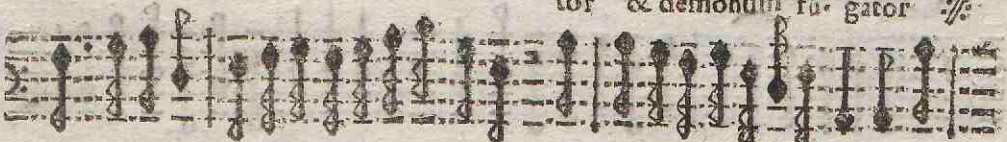 tor & demonum fu- gator ://: